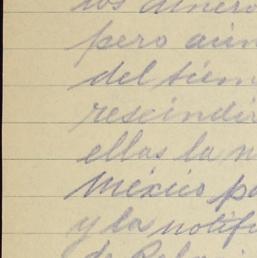 los dinero
pero aún
del tiem
rescindir
ellas la n
México pa
y la notif
de Rela